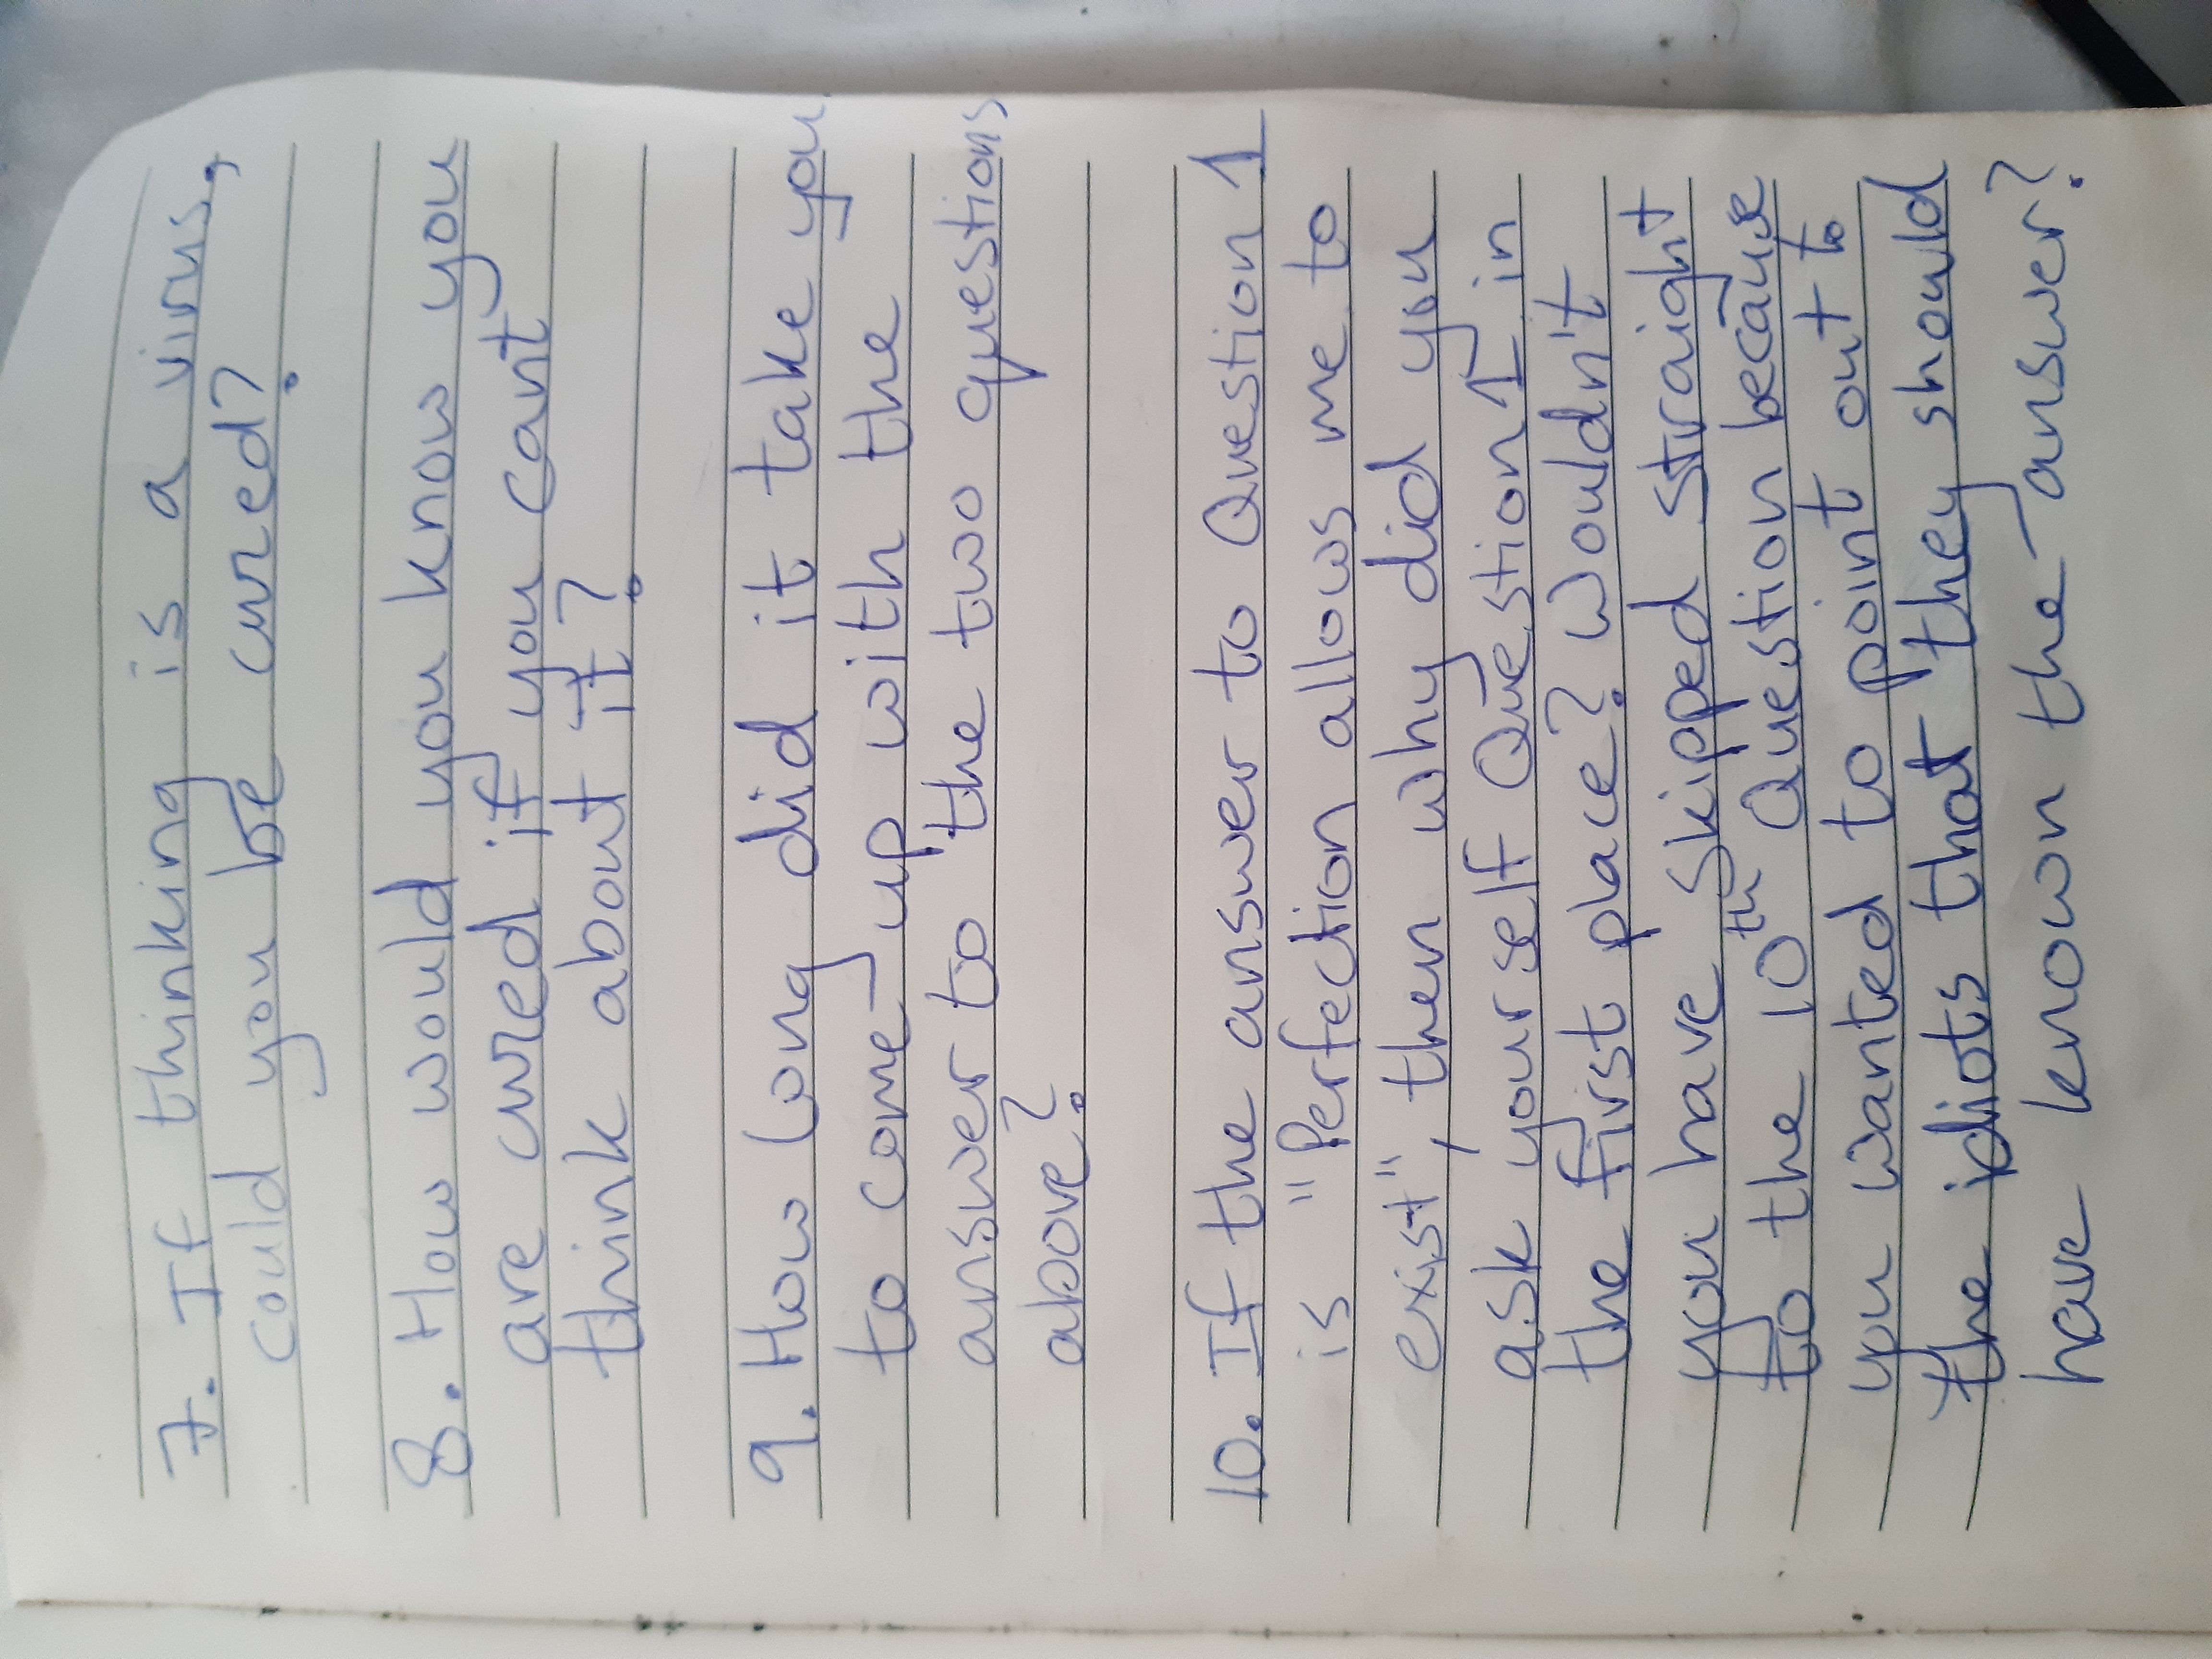 7. If thinking is a virus,
could you be cured?
8. How would you know you
are cured if you cant
think about it?
9. How long did it take you
to come up with the
answer to the two questions
above?
10. If the answer to Question 1
is "Perfection allows me to
exist", then why did you
ask yourself Question 1 in
the first place? Wouldn't
you have skipped straight
to the 10th Question because
you wanted to point out to
the idiots that they should
have known the answer?